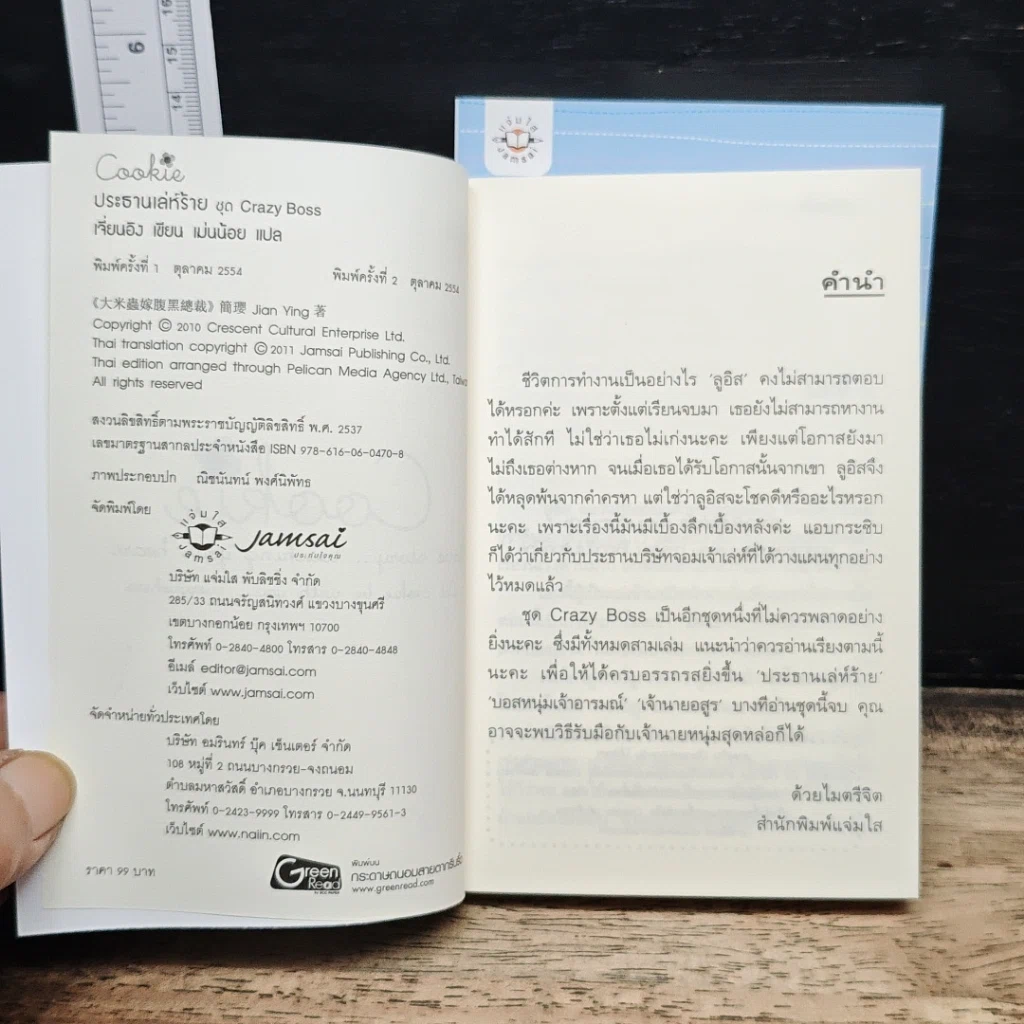 6
15
14
Cookie
ประธานเล่ห์ร้าย ชุด Crazy Boss
เจี่ยนอิง เขียน เม่นน้อย แปล
พิมพ์ครั้งที่ 1 ตุลาคม 2554
พิมพ์ครั้งที่ 2 ตุลาคม 2554
《大米蟲嫁腹黑總裁》簡瓔 Jian Ying 著
Copyright © 2010 Crescent Cultural Enterprise Ltd.
Thai translation copyright © 2011 Jamsai Publishing Co., Ltd.
Thai edition arranged through Pelican Media Agency Ltd.,
All rights reserved
สงวนลิขสิทธิ์ตามพระราชบัญญัติลิขสิทธิ์ พ.ศ. 2537
เลขมาตรฐานสากลประจำหนังสือ ISBN 978-616-06-0470-8
ภาพประกอบปก ณิชนันทน์ พงศ์นิพัทธ
จัดพิมพ์โดย
แจ่มใส
Jamsai
Jamsai
ประทับใจคุณ
บริษัท แจ่มใส พับลิชชิ่ง จำกัด
285/33 ถนนจรัญสนิทวงศ์ แขวงบางขุนศรี
เขตบางกอกน้อย กรุงเทพฯ 10700
โทรศัพท์ 0-2840-4800 โทรสาร 0-2840-4848
อีเมล์ editor@jamsai.com
เว็บไซต์ www.jamsai.com
จัดจำหน่ายทั่วประเทศโดย
บริษัท อมรินทร์ บุ๊ค เซ็นเตอร์ จำกัด
108 หมู่ที่ 2 ถนนบางกรวย-จงถนอม
ตำบลมหาสวัสดิ์ อำเภอบางกรวย จ.นนทบุรี 11130
โทรศัพท์ 0-2423-9999 โทรสาร 0-2449-9561-3
เว็บไซต์ www.naiin.com
ราคา 99 บาท
Green
Read
พิมพ์บน
กระดาษถนอมสายตากรีนรี้ด
www.greenread.com
แจ่มใส
Jamsai
คำนำ
ชีวิตการทำงานเป็นอย่างไร 'ลูอิส' คงไม่สามารถตอบ
ได้หรอกค่ะ เพราะตั้งแต่เรียนจบมา เธอยังไม่สามารถหางาน
ทำได้สักที ไม่ใช่ว่าเธอไม่เก่งนะคะ เพียงแต่โอกาสยังมา
ไม่ถึงเธอต่างหาก จนเมื่อเธอได้รับโอกาสนั้นจากเขา ลูอิสจึง
ได้หลุดพ้นจากคำครหา แต่ใช่ว่าลูอิสจะโชคดีหรืออะไรหรอก
นะคะ เพราะเรื่องนี้มันมีเบื้องลึกเบื้องหลังค่ะ แอบกระซิบ
ก็ได้ว่าเกี่ยวกับประธานบริษัทจอมเจ้าเล่ห์ที่ได้วางแผนทุกอย่าง
ไว้หมดแล้ว
ชุด Crazy Boss เป็นอีกชุดหนึ่งที่ไม่ควรพลาดอย่าง
ยิ่งนะคะ ซึ่งมีทั้งหมดสามเล่ม แนะนำว่าควรอ่านเรียงตามนี้
นะคะ เพื่อให้ได้ครบอรรถรสยิ่งขึ้น 'ประธานเล่ห์ร้าย'
'บอสหนุ่มเจ้าอารมณ์' 'เจ้านายอสูร' บางทีอ่านชุดนี้จบ คุณ
อาจจะพบวิธีรับมือกับเจ้านายหนุ่มสุดหล่อก็ได้
ด้วยไมตรีจิต
สำนักพิมพ์แจ่มใส